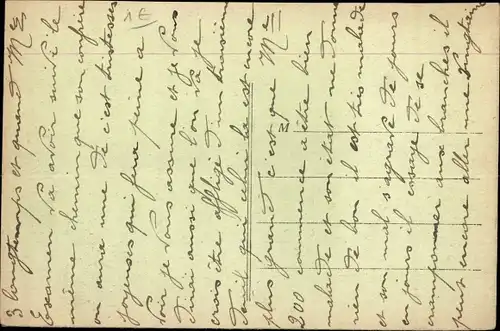 3 longtemps et quand M E
Examen va avoir suivi le
même chemin que son confrère
on aura une de c'est tristesses
joyeuses qui fera peine a
voir je vous assure et je vous
dirai aussi que l'on va je
crois être affligé d'un troisième
deuil qui celui la est encore
plus grand c'est que Me
200 commence a être bien
malade et son état ne donne
rien de bon il est très malade
et son mal s'agrave de jours
en jours il essaye de se
cramponner aux branches il
peut encore aller une vingtaine
M